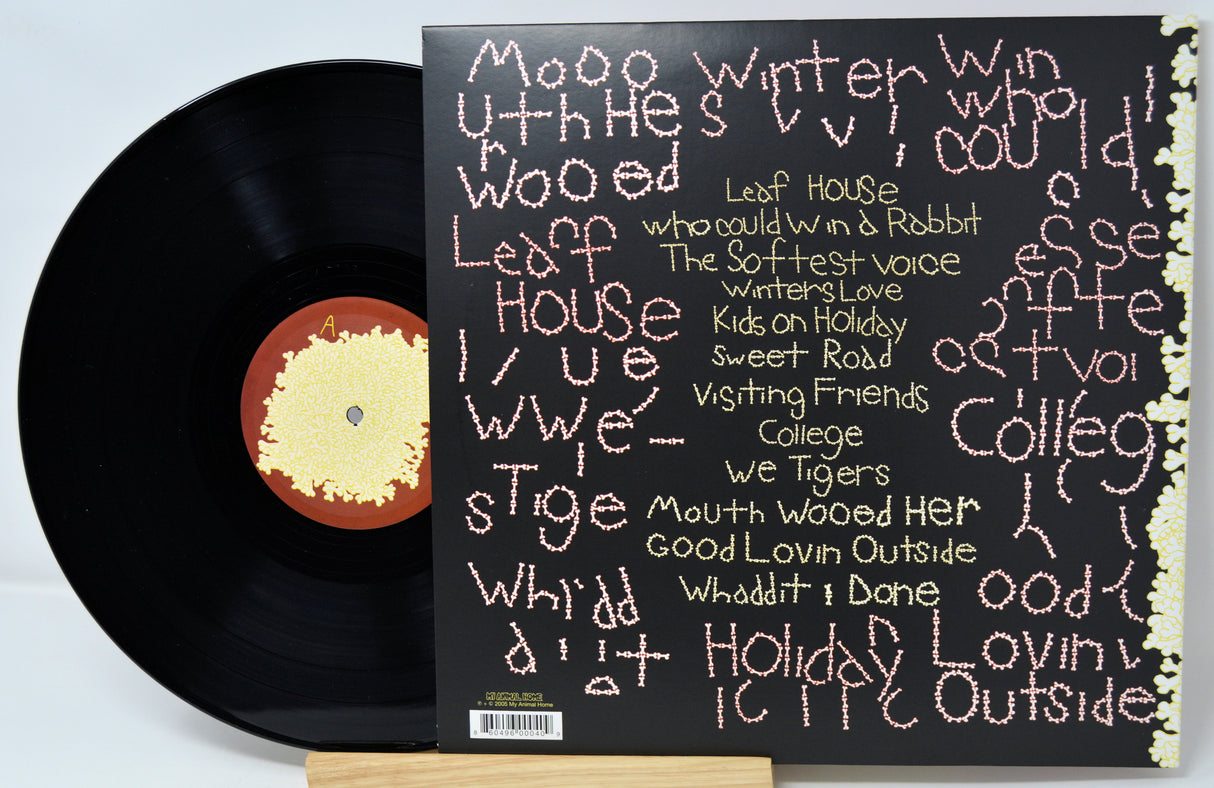 A
Mooo
uthHe
r
wooed
Leaff
House
ue
wwe
sTige
Winter
s
Win
who
could
Leaf House
who could win a Rabbit
The Softest voice
Winters Love
Kids on Holiday
Sweet Road
Visiting Friends
College
We Tigers
Mouth Wooed Her
Good Lovin Outside
Whaddit i Done
College
Holiday
Lovin
Outside
MY ANIMAL HOME
℗ + © 2005 My Animal Home
8 60496 00040 9